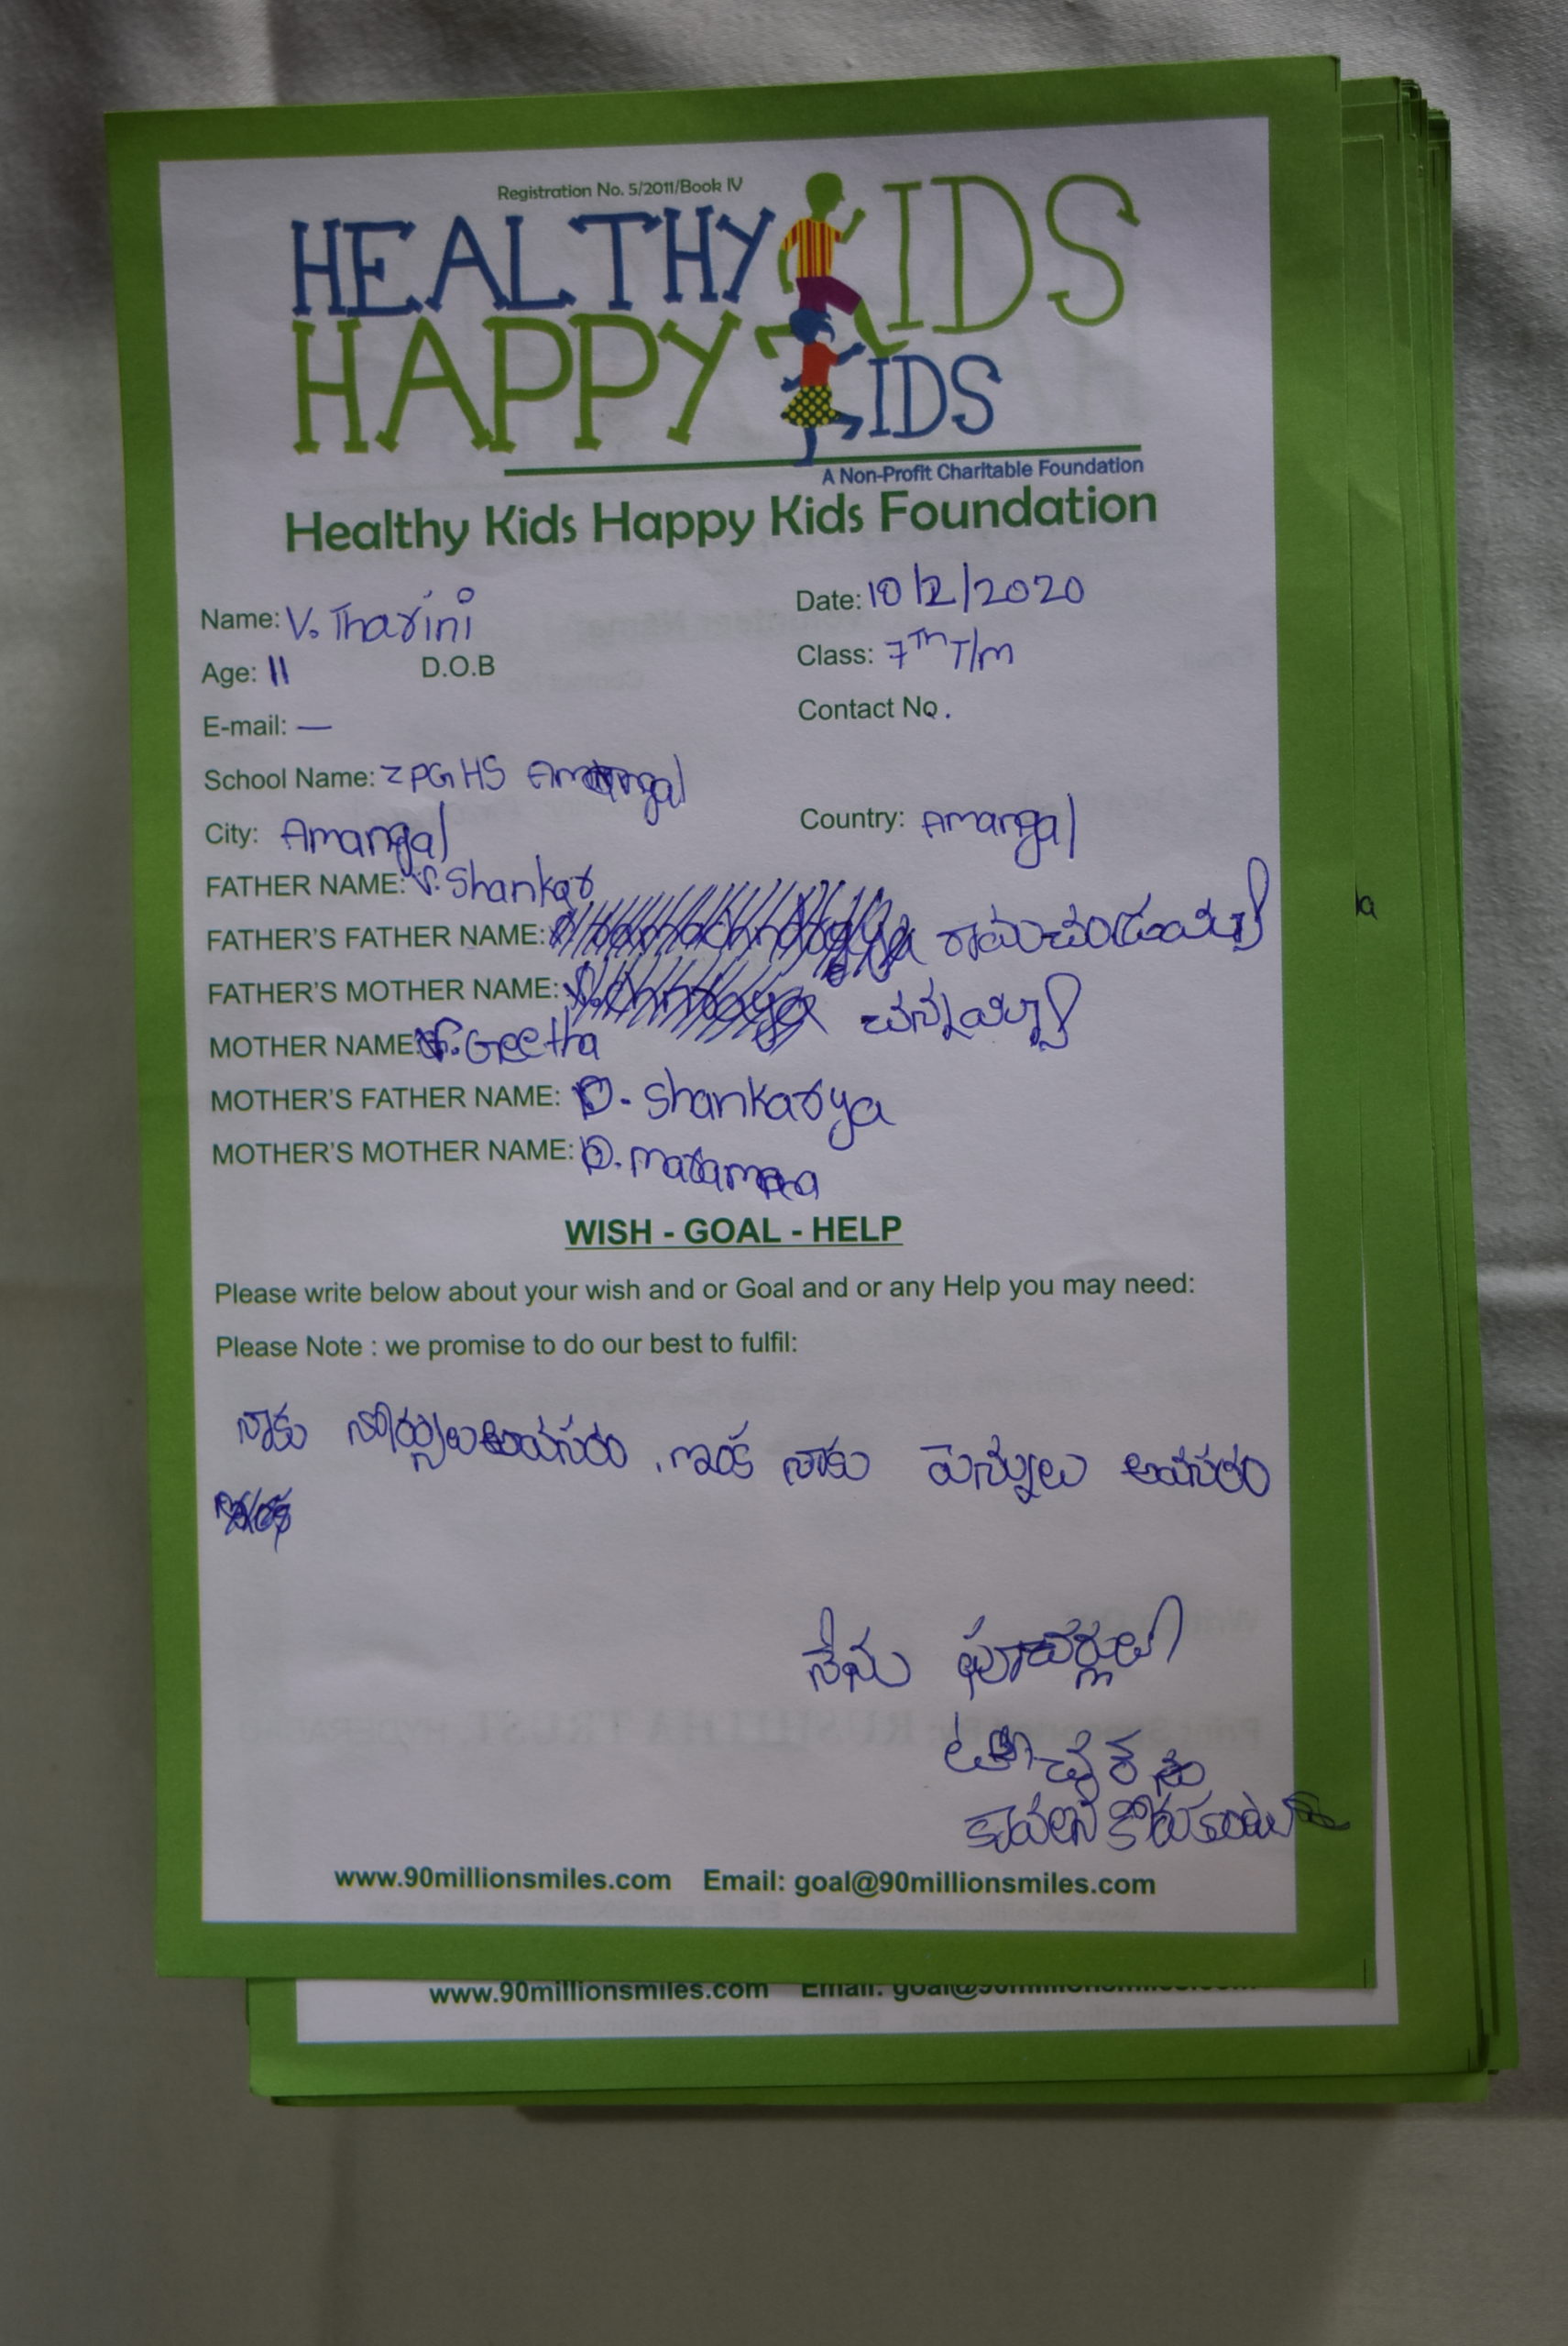 Registration No. 5/2011/Book IV
HEALTHY KIDS
HAPPY KIDS
A Non-Profit Charitable Foundation
Healthy Kids Happy Kids Foundation
Name: V. Tharini Date: 10/2/2020
Age: 11 D.O.B Class: 7th T/m
E-mail: — Contact No.
School Name: ZPGHS Amangal
City: Amangal Country: Amangal
FATHER NAME: V. Shankar
FATHER'S FATHER NAME: రామచంద్రయ్య
FATHER'S MOTHER NAME: చెన్నయ్య
MOTHER NAME: V. Geetha
MOTHER'S FATHER NAME: D. Shankarya
MOTHER'S MOTHER NAME: D.
WISH - GOAL - HELP
Please write below about your wish and or Goal and or any Help you may need:
Please Note : we promise to do our best to fulfil:
నాకు నోట్సులు అవసరం. ఇంకే నాకు పెన్నులు అవసరం
నేను
కావాలని కోరుకుంటు
www.90millionsmiles.com Email: goal@90millionsmiles.com
www.90millionsmiles.com Email: goal@90millionsmiles.com